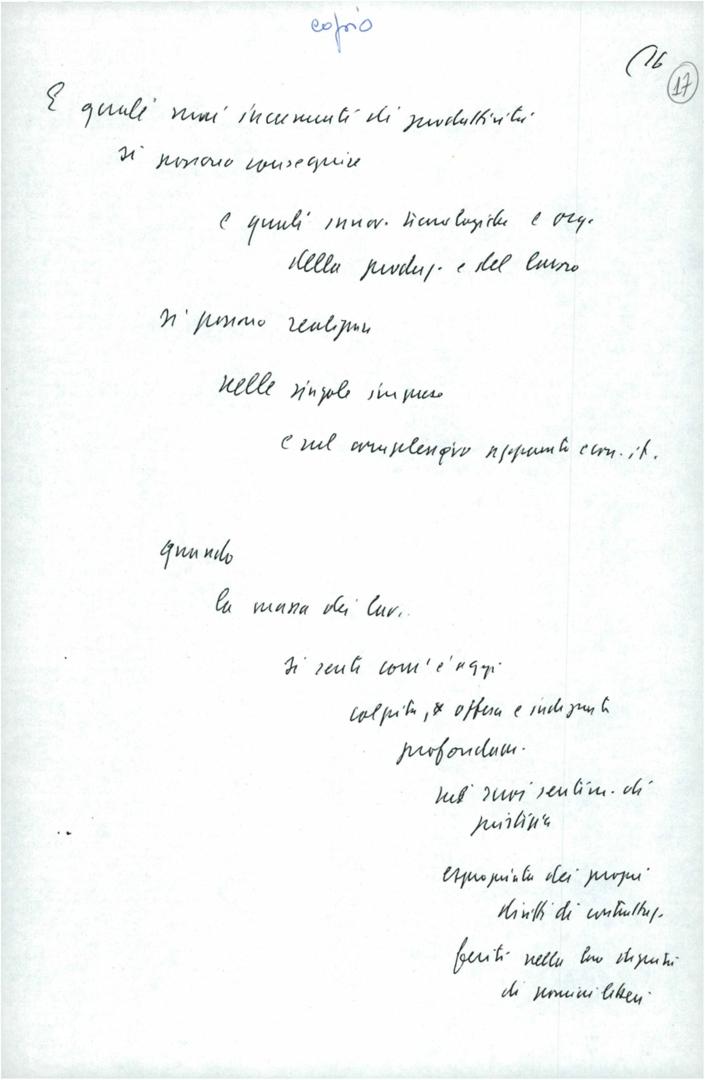 copio
(16
17
E quali nuovi incrementi di produttività
si possono conseguire
e quali innov. tecnologiche e org.
della produz. e del lavoro
si possono realizzare
nelle singole imprese
e nel complessivo apparato econ. it.
quando
la massa dei lav.
si sente com'è oggi
colpita, offesa e indignata
profondam.
nei suoi sentim. di
giustizia
espropriata dei propri
diritti di contrattaz.
feriti nella loro dignità
di uomini liberi